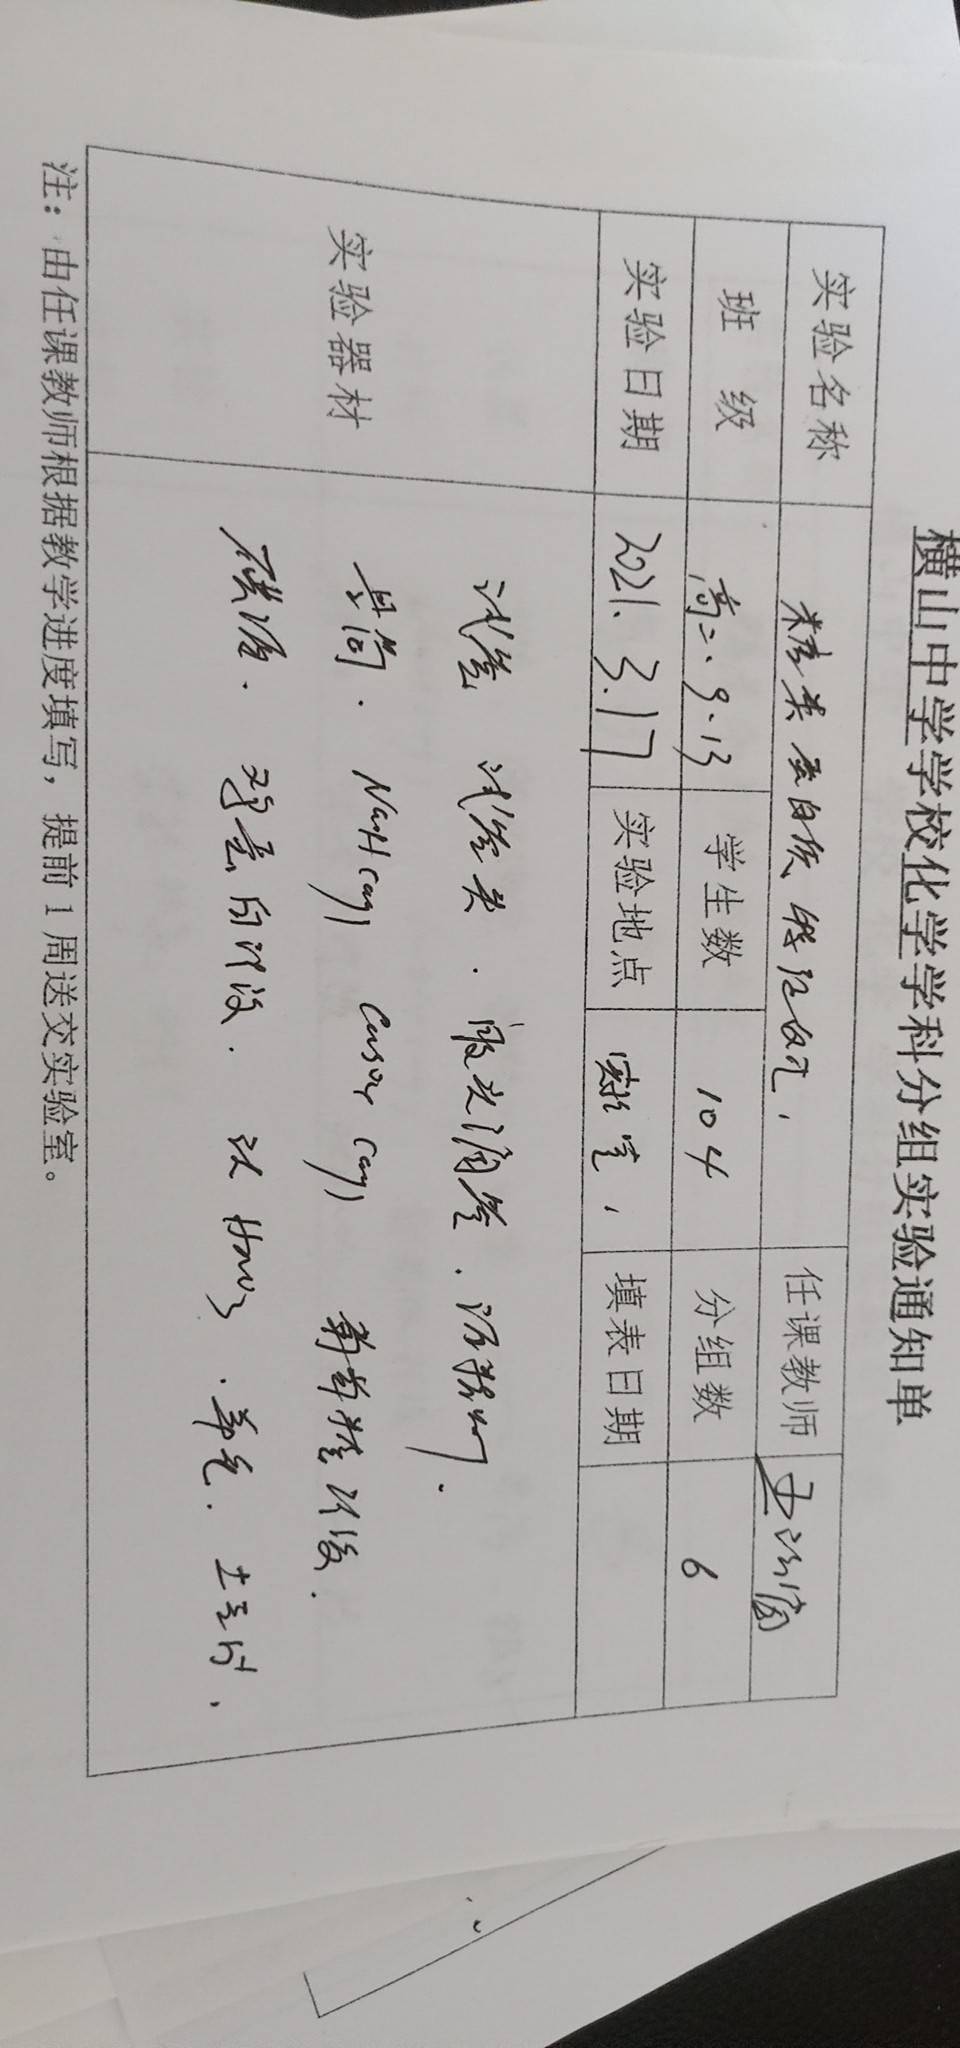 横山中学学校化学学科分组实验通知单
实验名称 糖类 蛋白质 任课教师
班 级 高二.9.13 学生数 104 分组数 6
实验日期 2021.3.17 实验地点 实验室 填表日期
实验器材
试管 试管夹. 胶头滴管.
量筒. NaOH(aq) CuSO4(aq) 葡萄糖溶液.
碘酒. 鸡蛋白溶液. 浓HNO3.
注：由任课教师根据教学进度填写，提前1周送交实验室。